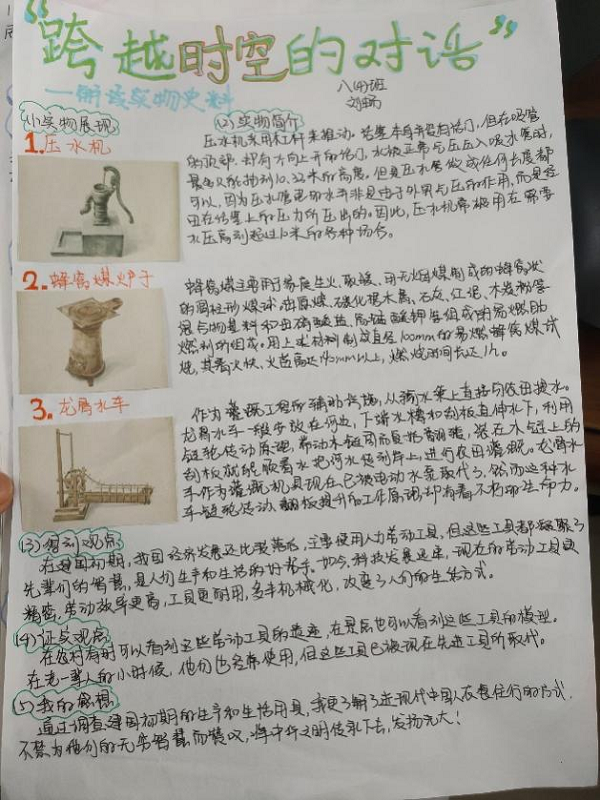 “跨越时空的对话”
——解读实物史料
八(4)班
(1)实物展现
(2)实物简介
1.压水机
压水机采用杠杆来推动。活塞本身并没有活门,但在吸管
的顶部,却有方向上开的活门,水被正常气压压入吸水管时,
最多只能抽到10.32米的高度。但是压水管做成任何长度都
可以,因为压水管里的水并非是由于外界气压的作用,而是经
由在活塞上的压力所压出的。因此,压水机常被用在需要
水压高到超过10米的各种场合。
2.蜂窝煤炉子
蜂窝煤主要用于家庭生火、取暖、用无烟煤制成的蜂窝状
的圆柱形煤球,由原煤、碳化锯木屑、石灰、红泥、木炭粉等
混合物基料和由硝酸盐、高锰酸钾等组成的易燃助
燃剂所组成。用上述材料制成直径100mm的易燃蜂窝煤试
烧,其着火快,火苗高达140mm以上,燃烧时间长达1h。
3.龙骨水车
作为灌溉工程的辅助设施,从输水渠上直接向农田提水。
龙骨水车一般安放在河边,下端水槽和刮板直伸水下,利用
链轮传动原理,带动木链周而复始翻转,装在木链上的
刮板就能顺着水把河水提到岸上,进行农田灌溉。龙骨水
车作为灌溉机具现在已被电动水泵取代了,然而这种水
车链轮传动、翻板提升的工作原理,却有着不朽的生命力。
(3)得到观点
在建国初期,我国经济发展还比较落后,主要使用人力劳动工具,但这些工具都凝聚了
先辈们的智慧,是人们生产和生活的好帮手。如今,科技发展迅速,现在的劳动工具更
精密,劳动效率更高,工具更耐用,多半机械化,改变了人们的生活方式。
(4)证实观点
在农村有时可以看到这些劳动工具的遗迹,在景点也可以看到这些工具的模型。
在老一辈人的小时候,他们也经常使用,但这些工具已被现在先进工具所取代。
(5)我的感想
通过调查建国初期的生产和生活用具,我更了解了近现代中国人衣食住行的方式,
不禁为他们的无穷智慧而赞叹,将中华文明传承下去,发扬光大!